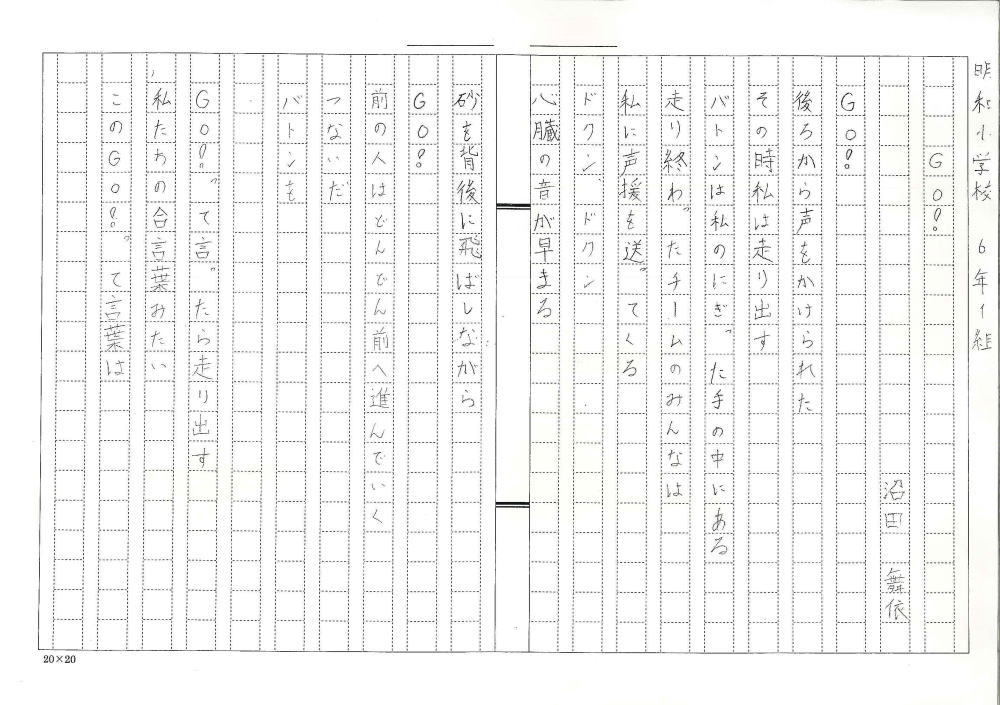 明和小学校 6年1組
GO!
沼田 舞依
GO!
後ろから声をかけられた
その時私は走り出す
バトンは私のにぎった手の中にある
走り終わったチームのみんなは
私に声援を送ってくる
ドクン、ドクン
心臓の音が早まる
砂を背後に飛ばしながら
GO!
前の人はどんどん前へ進んでいく
つないだ
バトンを
GO!って言ったら走り出す
私たちの合言葉みたい
このGO!って言葉は
20×20